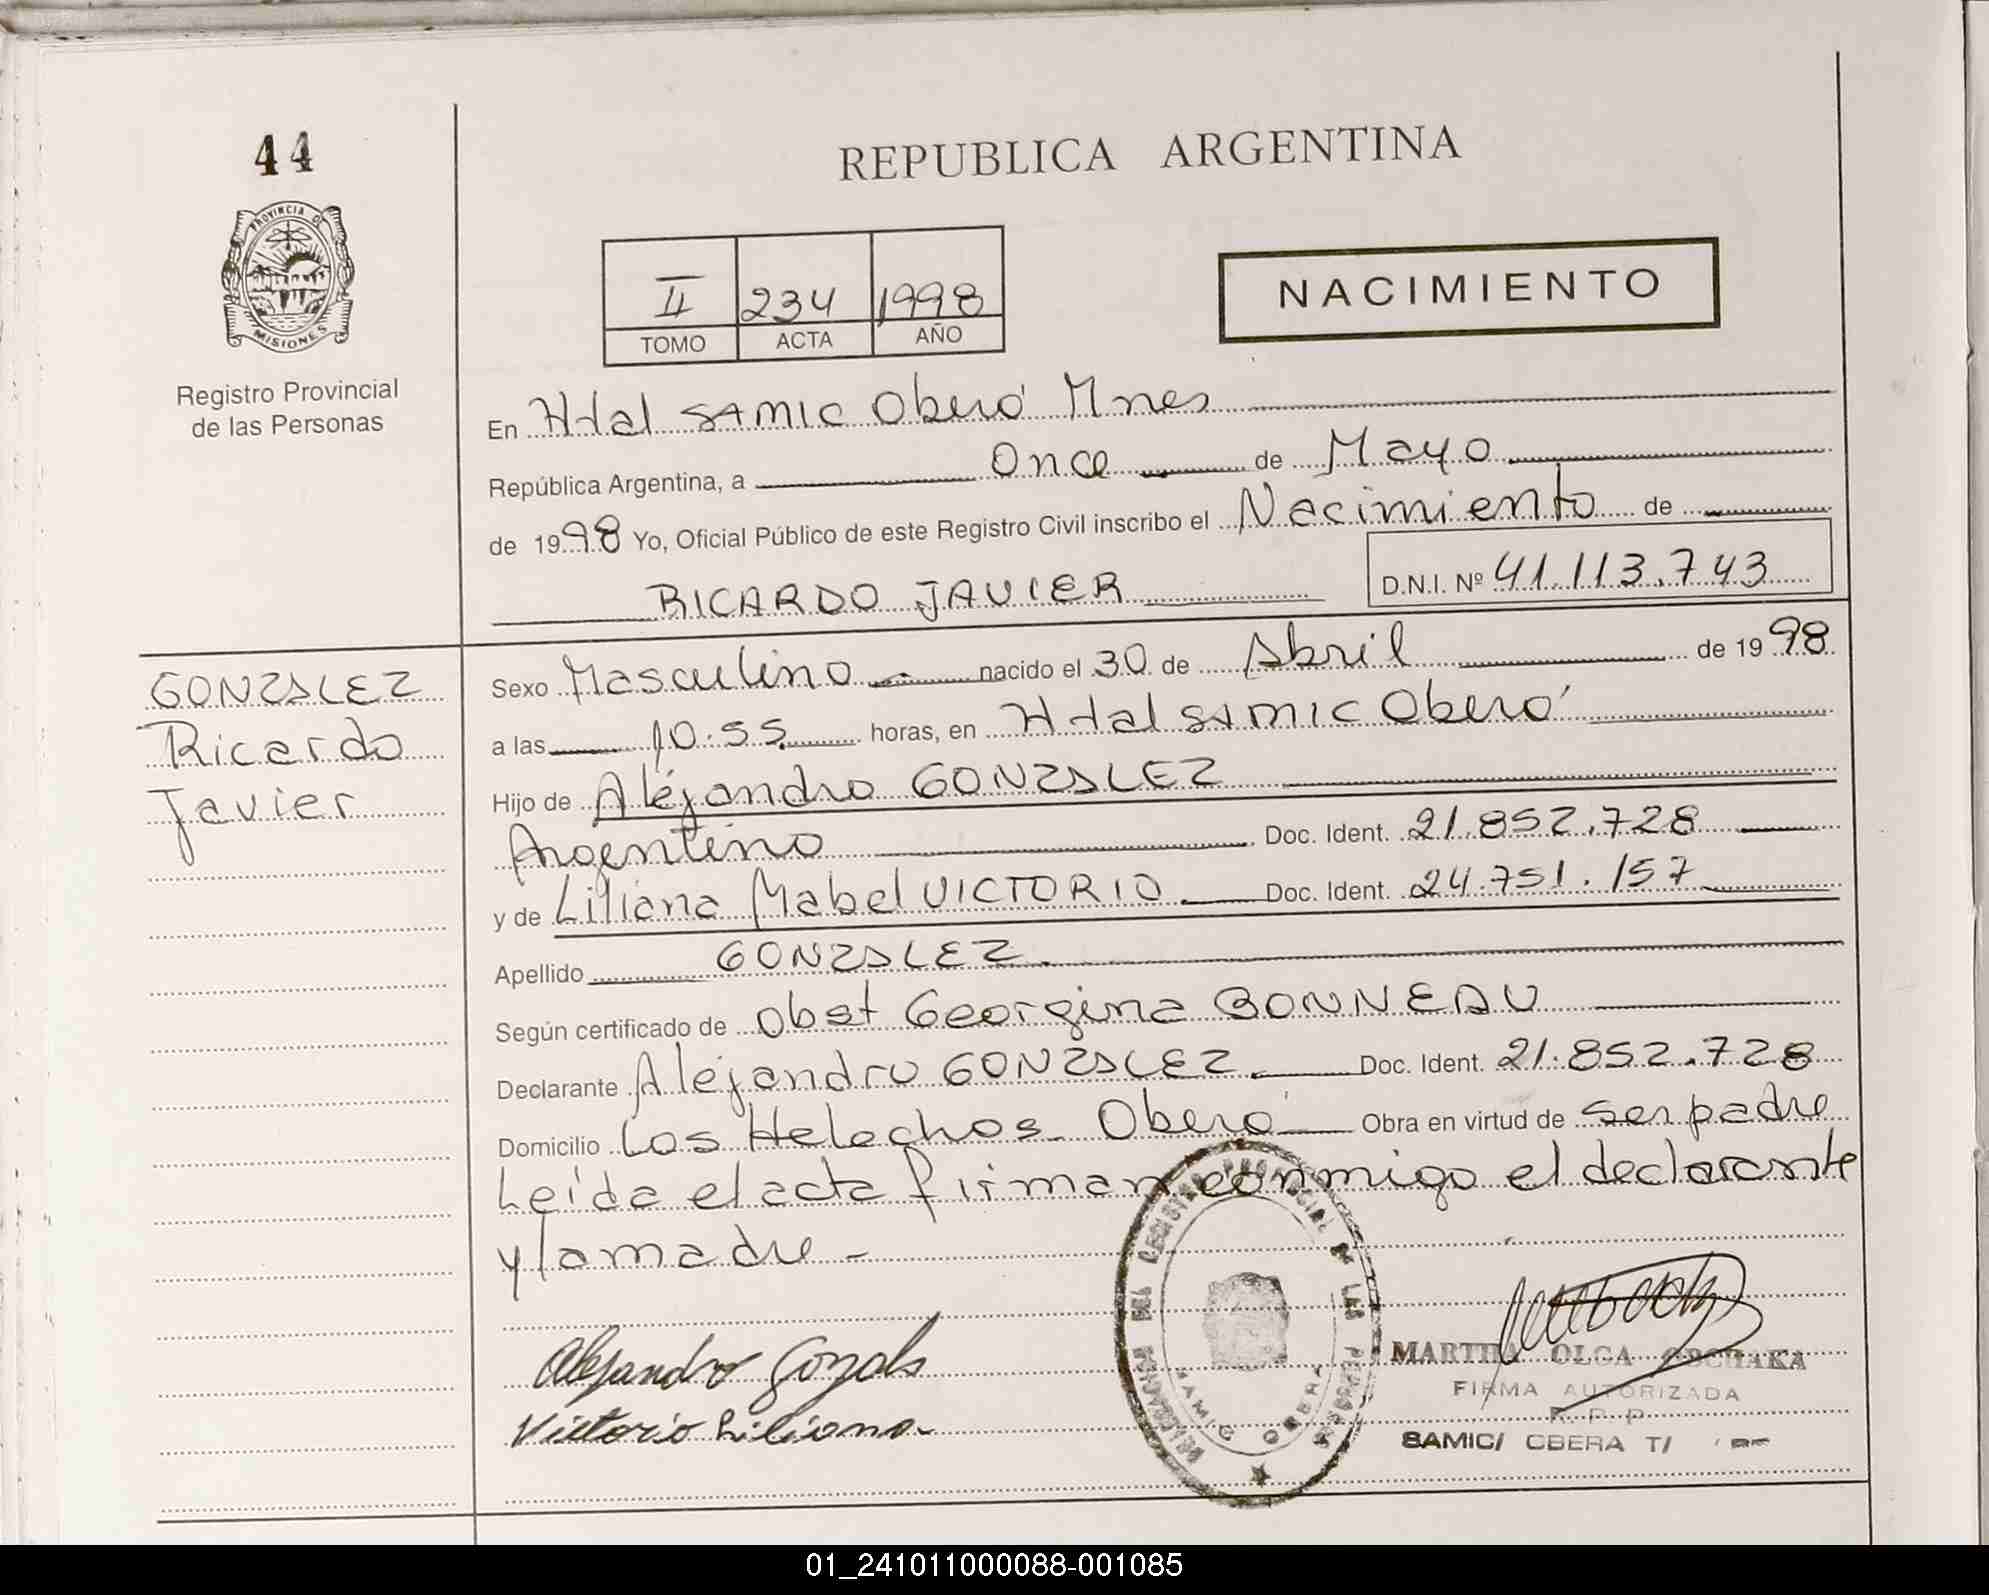 44
PROVINCIA DE
MISIONES
Registro Provincial
de las Personas
REPUBLICA ARGENTINA
II 234 1998
TOMO ACTA AÑO
NACIMIENTO
En Htal SAMIC Oberá Mnes
República Argentina, a Once de Mayo
de 1998 Yo, Oficial Público de este Registro Civil inscribo el Nacimiento de
RICARDO JAVIER D.N.I. Nº 41.113.743
GONZALEZ
Ricardo
Javier
Sexo Masculino nacido el 30 de Abril de 1998
a las 10.55 horas, en Htal SAMIC Oberá
Hijo de Alejandro GONZALEZ
Argentino Doc. Ident. 21.852.728
y de Liliana Mabel VICTORIO Doc. Ident. 24.751.157
Apellido GONZALEZ
Según certificado de Obst Georgina BONNEAU
Declarante Alejandro GONZALEZ Doc. Ident. 21.852.728
Domicilio Los Helechos Oberá Obra en virtud de ser padre
Leída el acta firman conmigo el declarante
y la madre -
DELEGACION DEL REGISTRO PROVINCIAL DE LAS PERSONAS
SAMIC OBERA
Alejandro Gonzales
Victorio Liliana
MARTHA OLGA
FIRMA AUTORIZADA
R.P.P.
SAMIC/ OBERA T/
01_241011000088-001085